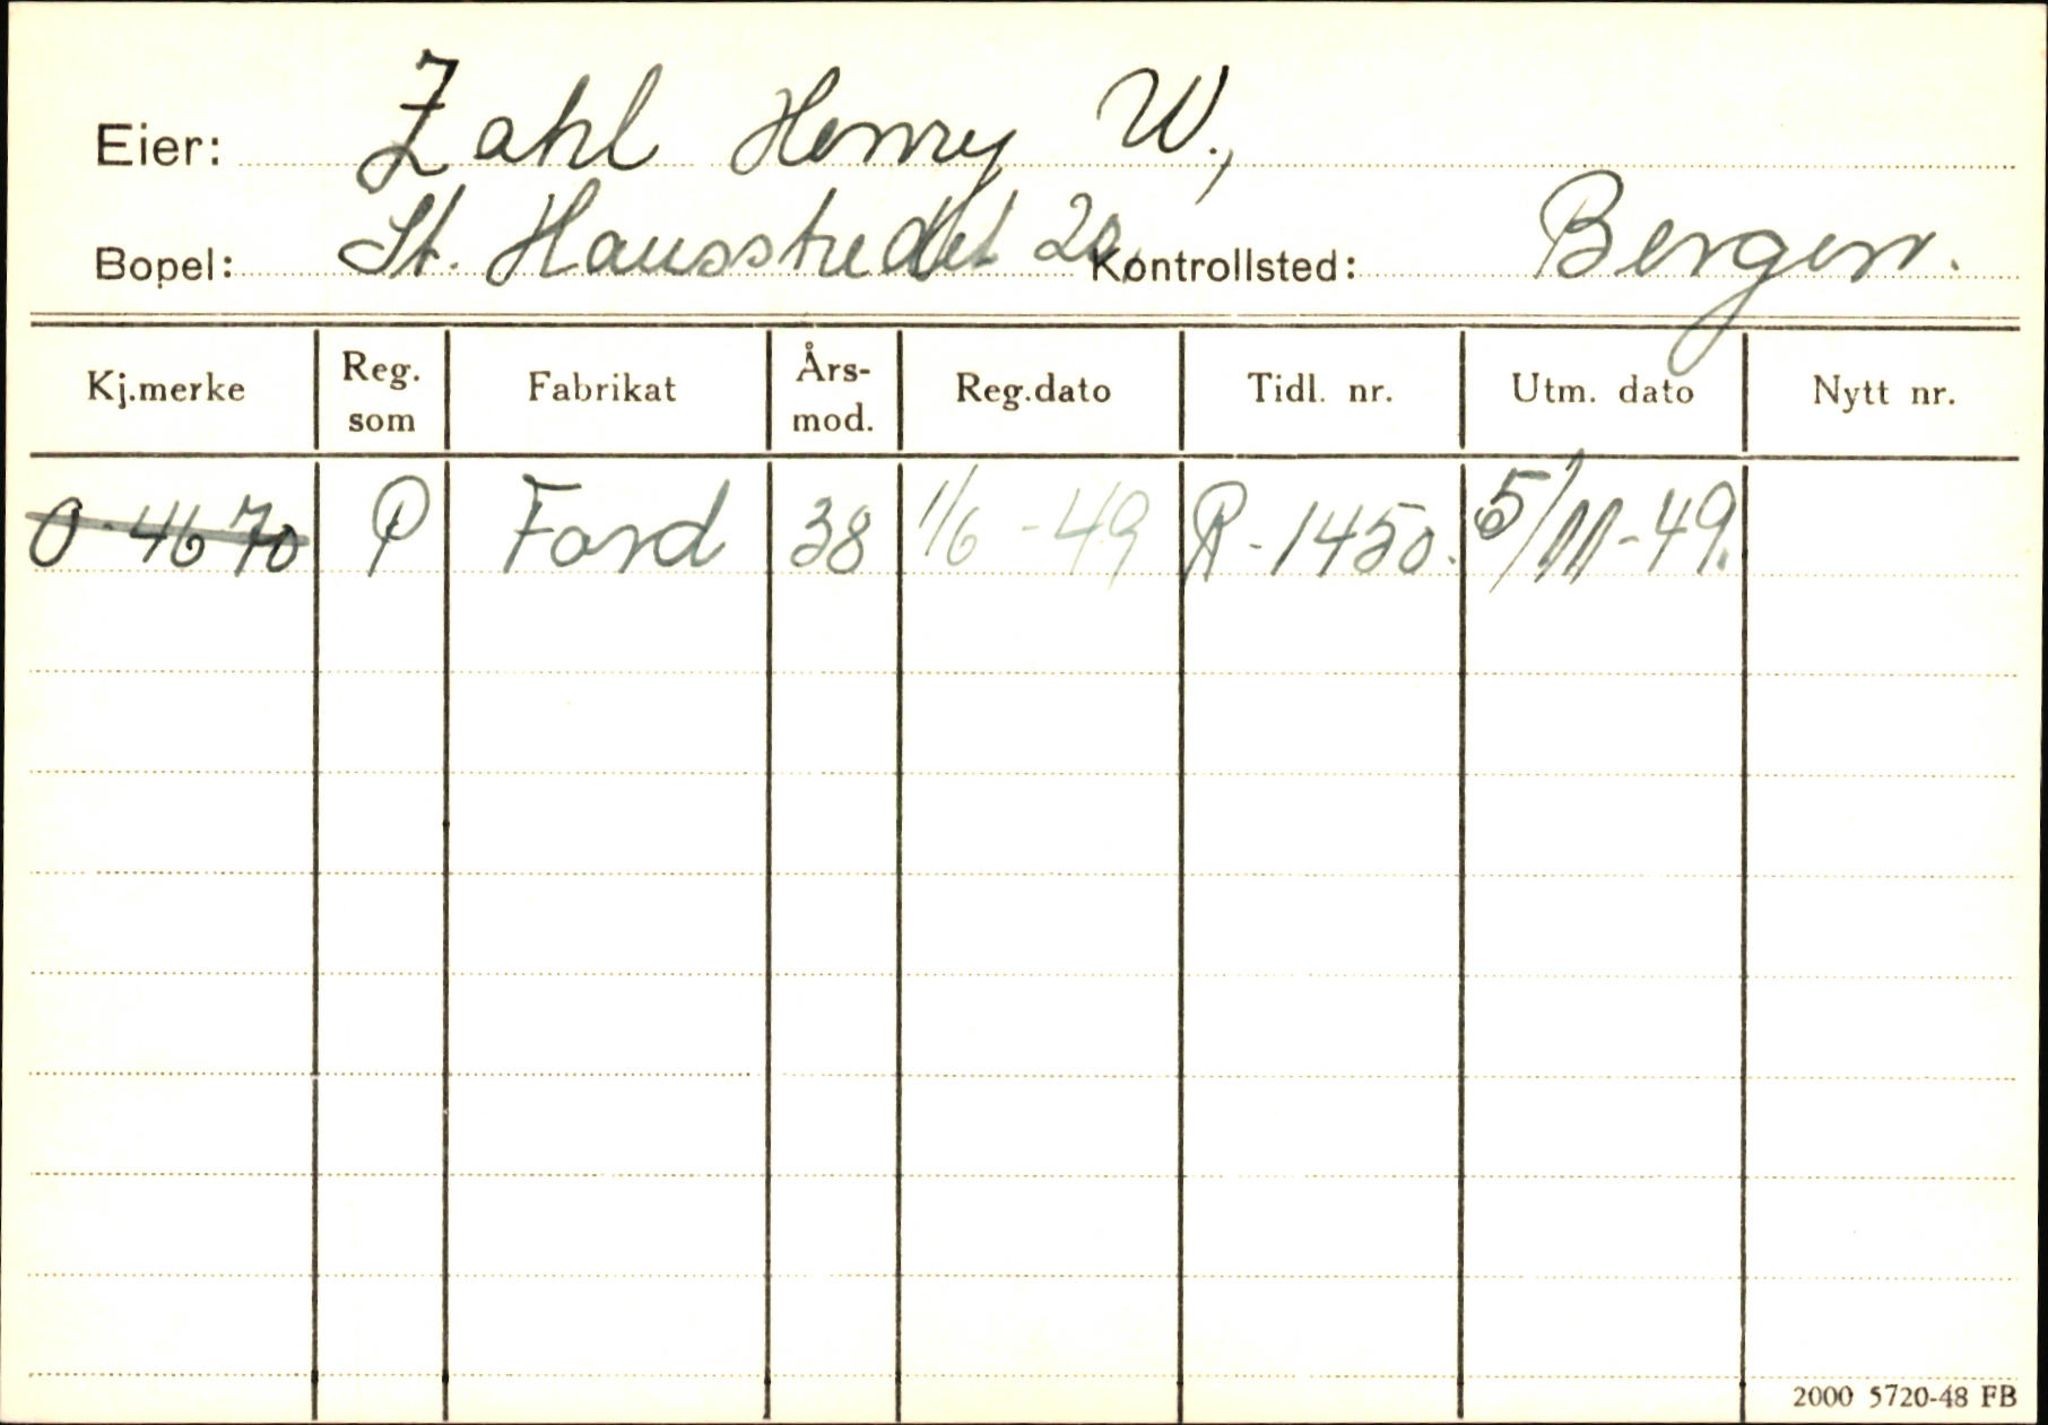 Eier: Zahl Henry W.,
Bopel: St. Hansstredet 20, Kontrollsted: Bergen.
Kj.merke Reg. som Fabrikat Års-mod. Reg.dato Tidl. nr. Utm. dato Nytt nr.
O-4670 P Ford 38 1/6-49 R-1450. 5/11-49.
2000 5720-48 FB